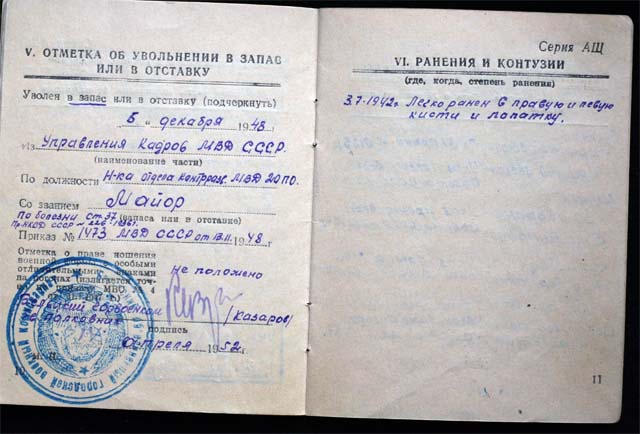 V. ОТМЕТКА ОБ УВОЛЬНЕНИИ В ЗАПАС
ИЛИ В ОТСТАВКУ
Уволен в запас или в отставку (подчеркнуть)
5 „ декабря 1948
из Управления Кадров МВД СССР.
(наименование части)
По должности Н-ка отдела контрраз. МВД 20 ПО.
Со званием Майор
По болезни ст. 37 (запаса или в отставке)
Пр. НКОД СССР № 226-1946г.
Приказ № 1473 МВД СССР от 13.11. 1948 г.
Отметка о праве ношения
военной с особыми
отличительными знаками
на погонах
Не положено
полковник
(Казаров)
подпись
апреля 1952 г.
М. П.
10
Серия АЩ
VI. РАНЕНИЯ И КОНТУЗИИ
(где, когда, степень ранения)
3.7-1942г. Легко ранен в правую и левую
кисти и лопатку.
11